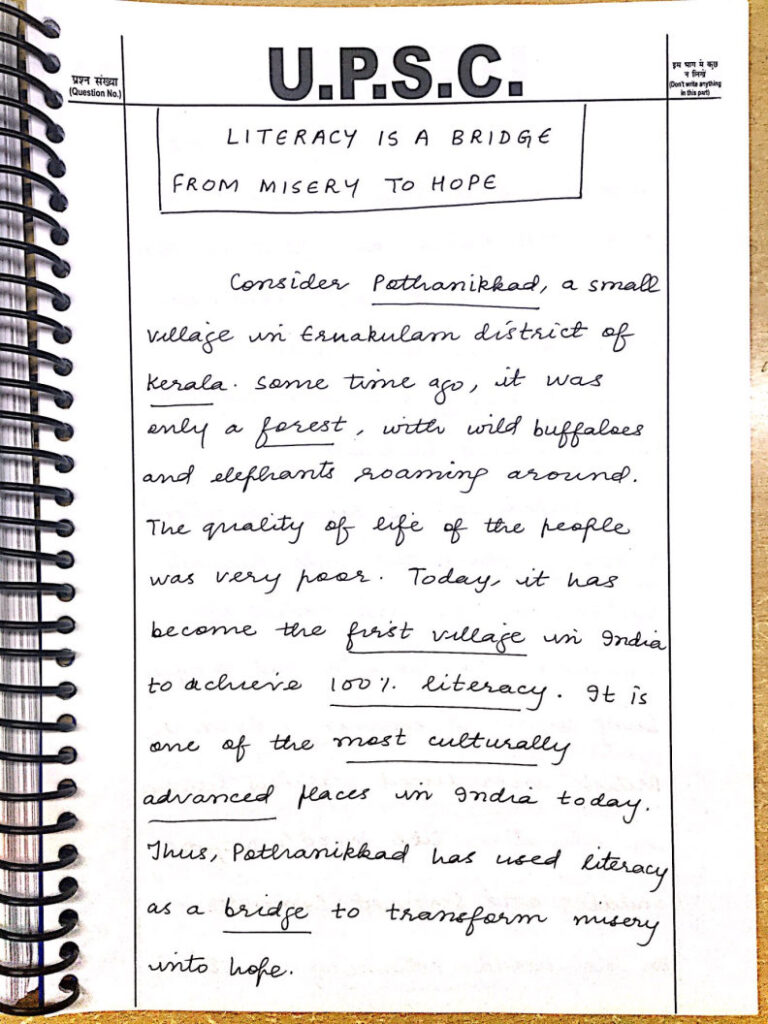 प्रश्न संख्या
(Question No.)
U.P.S.C.
इस भाग में कुछ
न लिखें
(Don't write anything
in this part)
LITERACY IS A BRIDGE
FROM MISERY TO HOPE
Consider Pothanikkad, a small
village in Ernakulam district of
Kerala. Some time ago, it was
only a forest, with wild buffaloes
and elephants roaming around.
The quality of life of the people
was very poor. Today, it has
become the first village in India
to achieve 100% literacy. It is
one of the most culturally
advanced places in India today.
Thus, Pothanikkad has used literacy
as a bridge to transform misery
into hope.